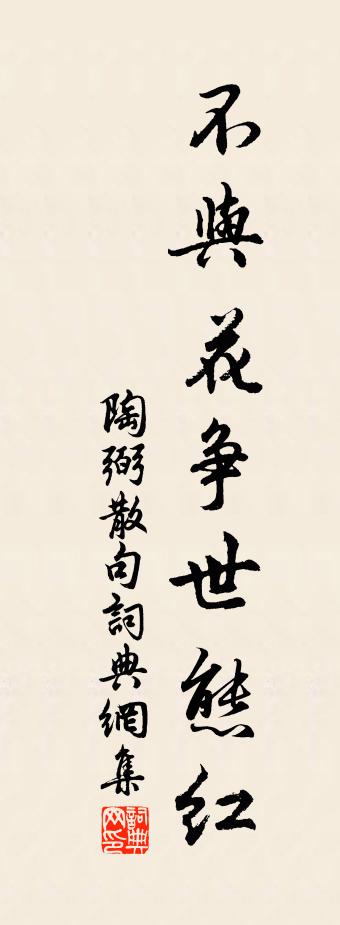 不與花争世態紅
陶弼散句詞典網集
詞典網印